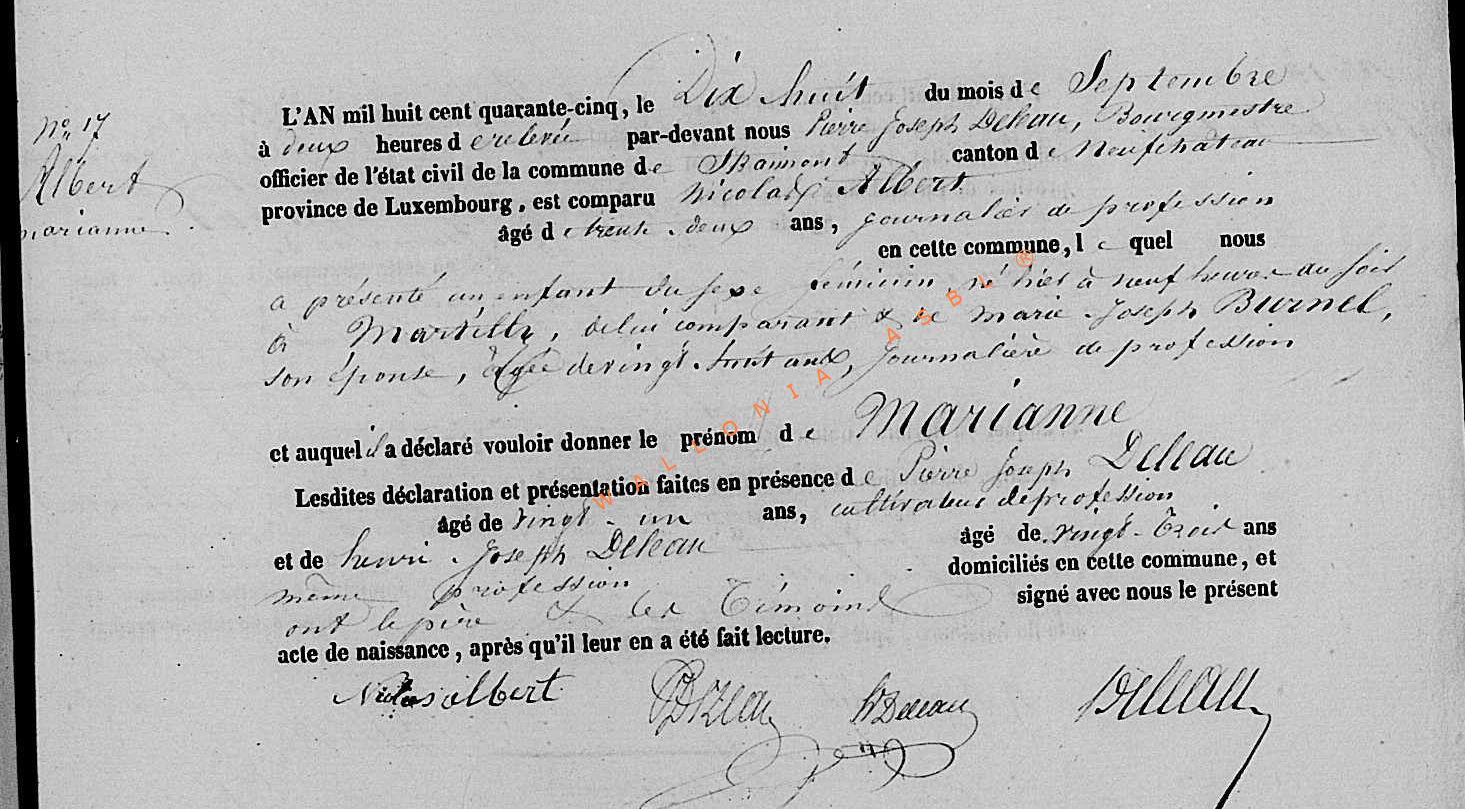 N° 17
Albert
Marianne.
L'AN mil huit cent quarante-cinq, le Dix huit du mois de Septembre
à deux heures de relevée par-devant nous Pierre Joseph Deleau, Bourgmestre
officier de l'état civil de la commune de Straimont, canton de Neufchâteau
province de Luxembourg, est comparu Nicolas Albert
âgé de trente-deux ans, journalier de profession
en cette commune, lequel nous
a présenté un enfant du sexe féminin, né hier à neuf heures du soir
à Martilly, de lui comparant & de Marie-Joseph Burnel,
son épouse, âgée de vingt-huit ans, journalière de profession
et auquel il a déclaré vouloir donner le prénom de Marianne
Lesdites déclaration et présentation faites en présence de Pierre Joseph Deleau
âgé de vingt-un ans, cultivateur de profession
et de henri-Joseph Deleau âgé de vingt-trois ans
même profession domiciliés en cette commune, et
ont le père & les Témoins signé avec nous le présent
acte de naissance, après qu'il leur en a été fait lecture.
Nicolas albert PDeleau hDeleau Deleau
WALLONIA ASBL ®